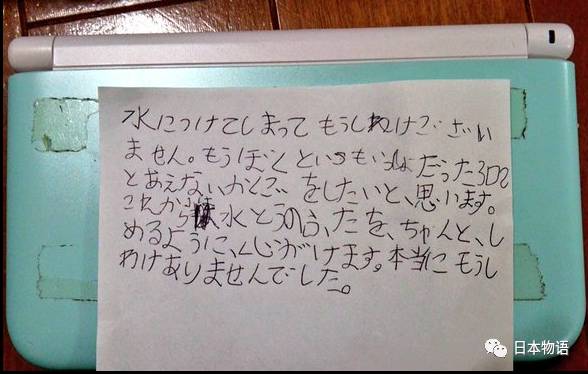 水につけてしまって もうしわけござい
ません。もうぼくといつもいっしょだった3DS
とあえないかくごをしたいと、思います。
これから水とうのふ、たを、ちゃんと、し
めるように、心がけます。本当にもうし
わけありませんでした。
日本物语